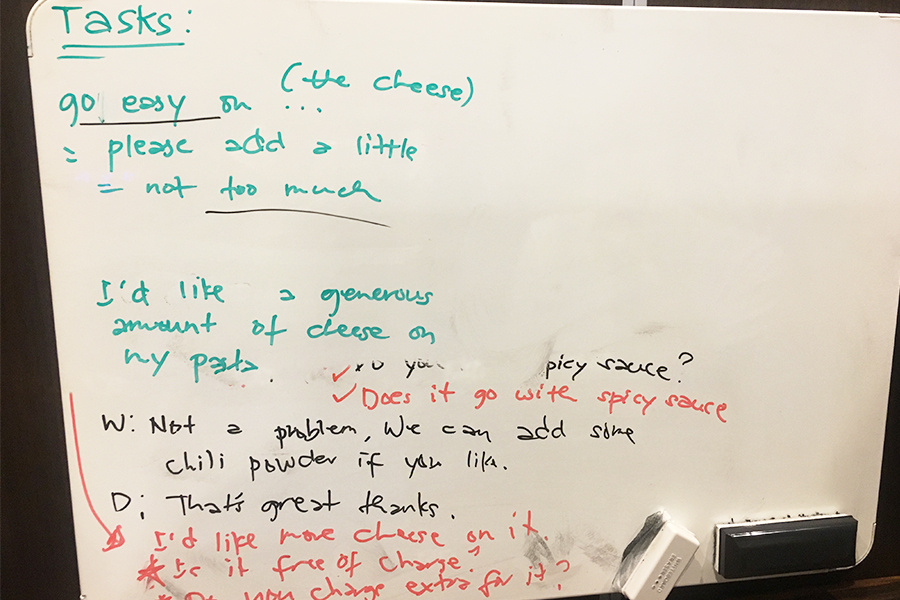 Tasks:
go easy on ... (the cheese)
= please add a little
= not too much
I'd like a generous
amount of cheese on
my pasta.
you spicy sauce?
Does it go with spicy sauce
W: Not a problem, We can add some
chili powder if you like.
D: That's great thanks.
I'd like more cheese on it.
Is it free of charge?
you charge extra for it?